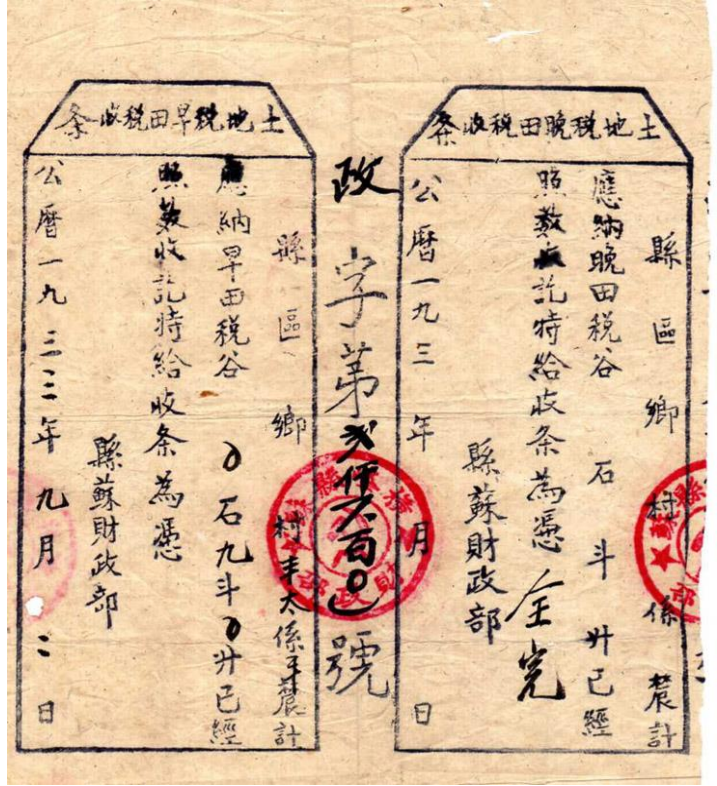 土地税晚田税收条
縣 區 鄉 村 係 農計
應納晚田税谷 石 斗 升已經
照数收訖特給收条為憑 全完
縣蘇財政部
公曆一九三 年 月 日
政字第弍仟六百 號
土地税早田税收条
縣 區 鄉 村 丰太係 農計
應納早田税谷 0石九斗0升已經
照数收訖特給收条為憑
縣蘇財政部
公曆一九三三年九月二日